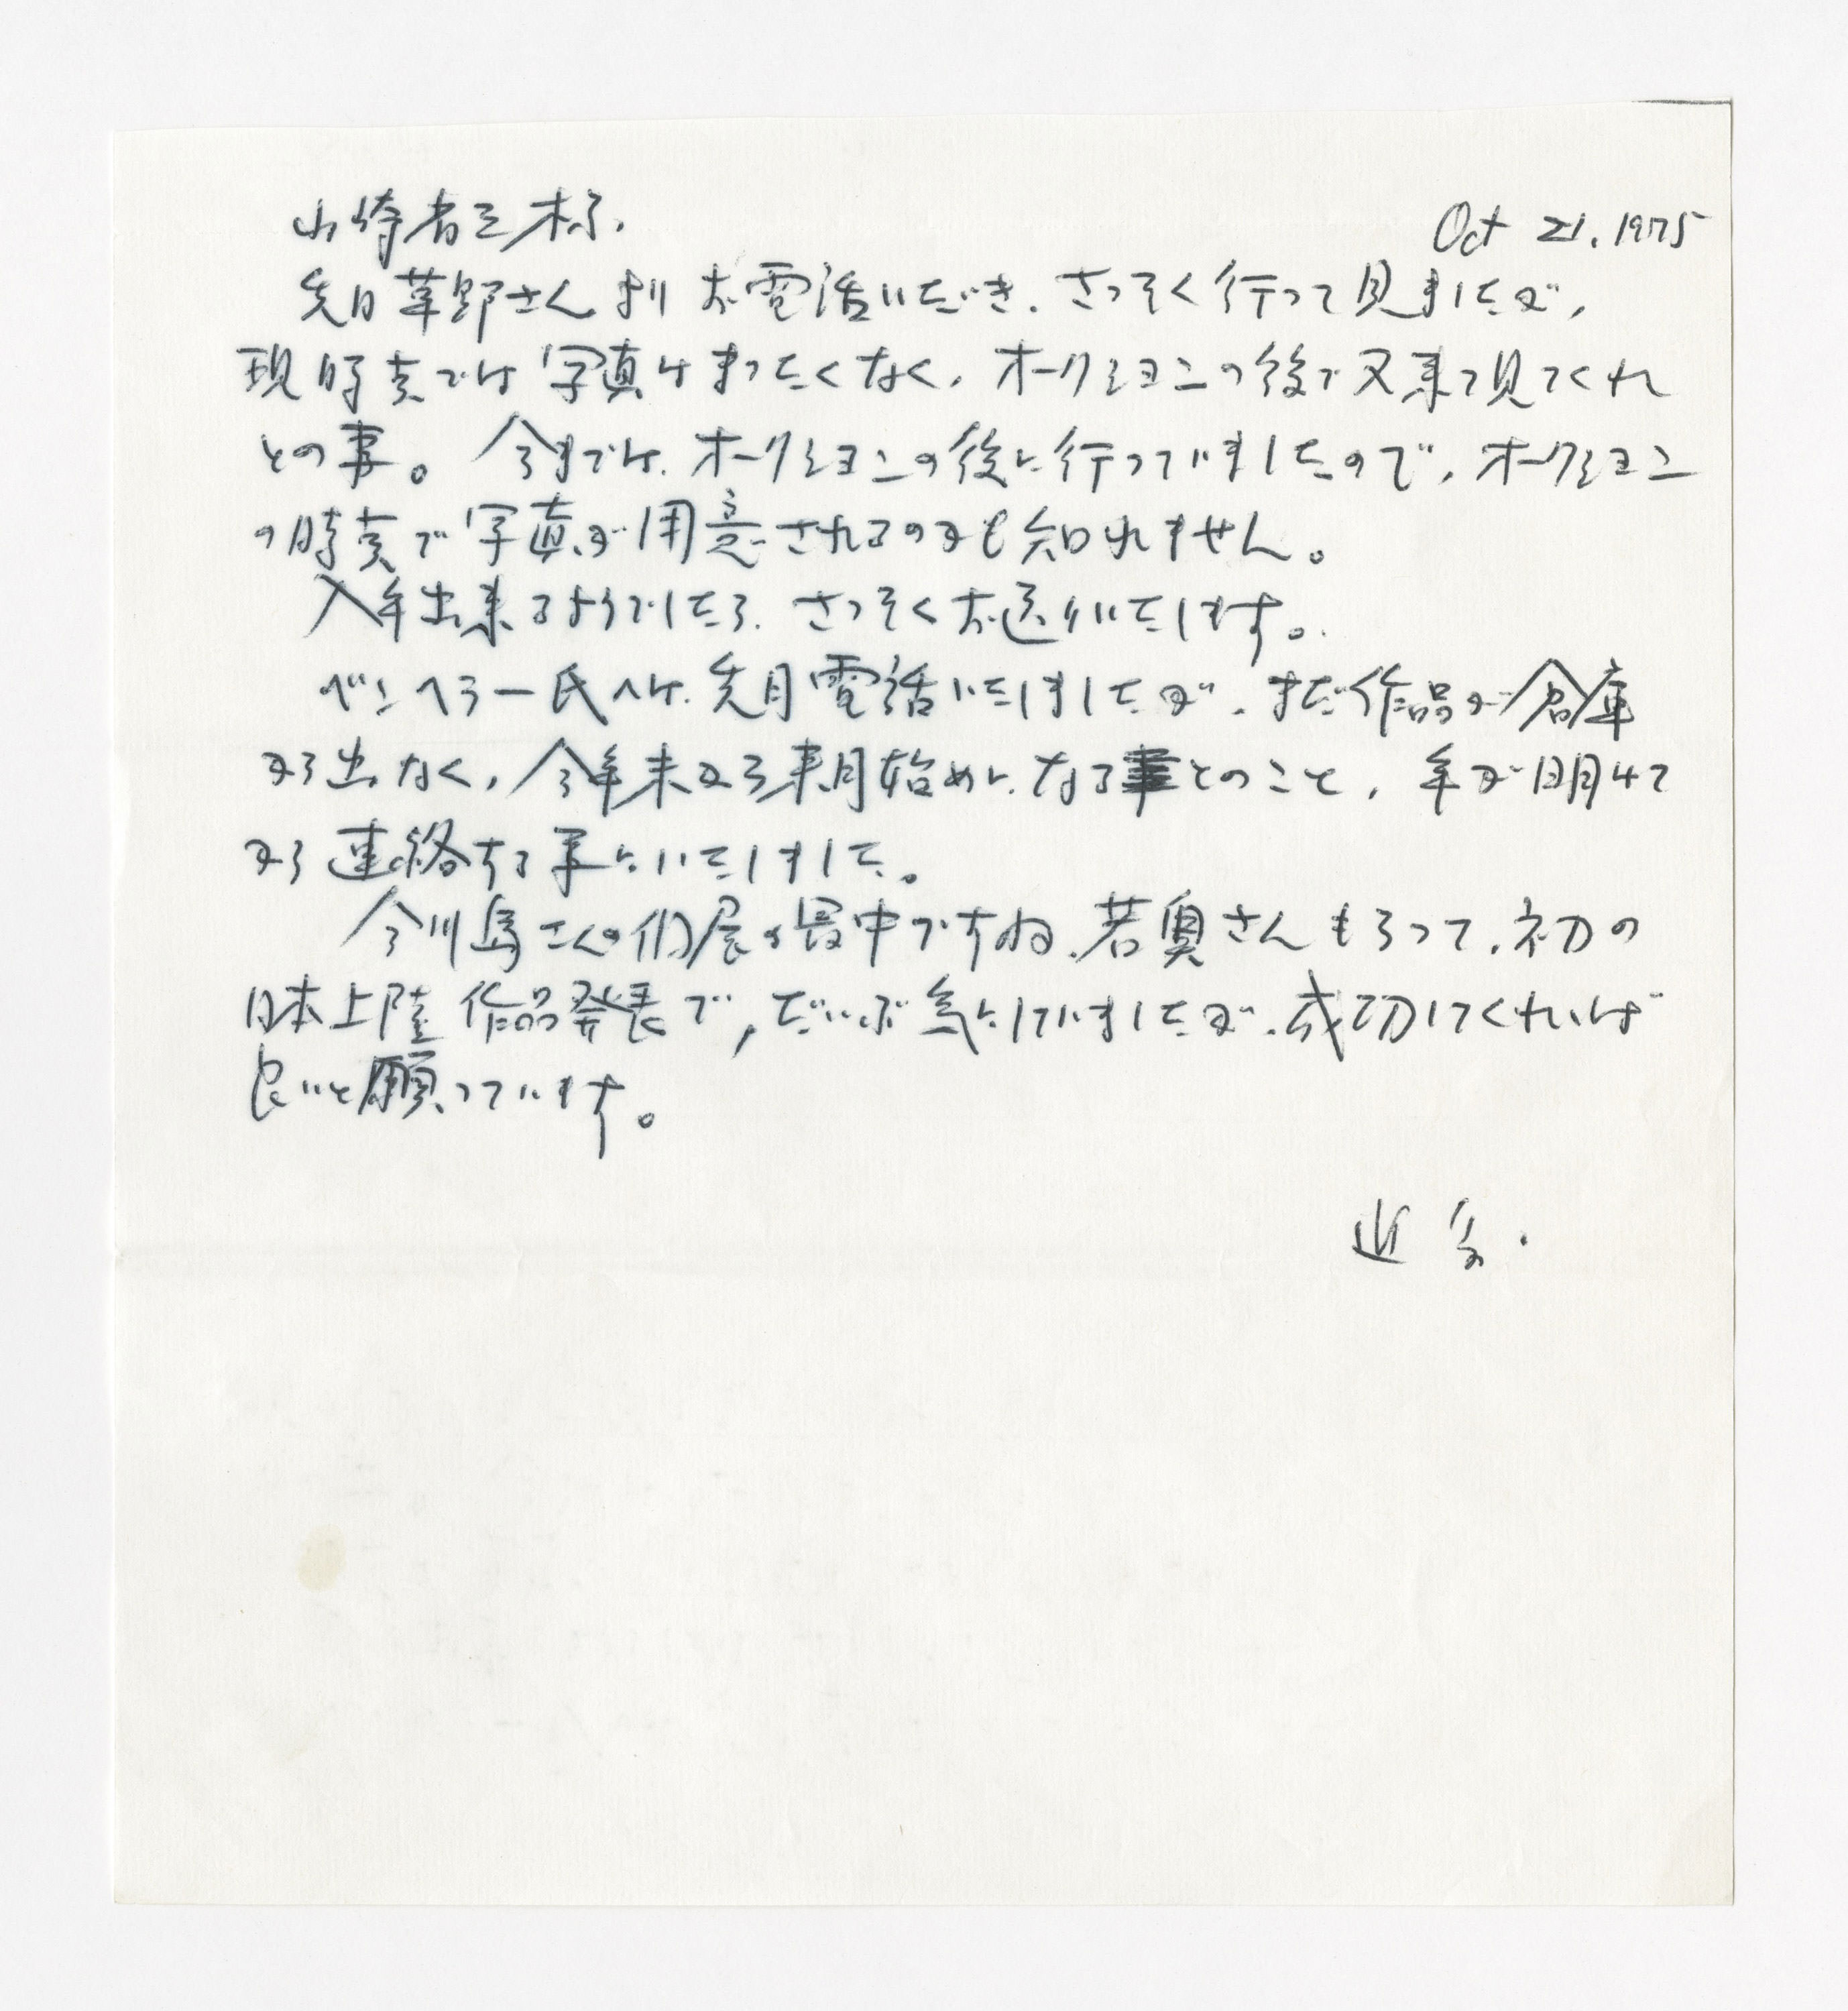 山崎省三様、
Oct 21. 1975
先日草野さんより お電話いただき、さっそく行って見ましたが、
現時点では写真はまったくなく、オークションの後で又来て見てくれ
との事。今までは、オークションの後に行っていましたので、オークション
の時点で写真が用意されるのかも知れません。
入手出来るようでしたら、さっそくお送りいたします。
ベン ヘラー氏へは、先月電話いたしましたが、まだ作品が倉庫
から出なく、今年末から来月始めに、なるとのこと、年が明けて
から連絡する事にいたしました。
今川島さんの個展の最中ですね、若奥さんもらって、初の
日本上陸作品発表で、だいぶ気にしていましたが、成功してくれれば
良いと願っています。